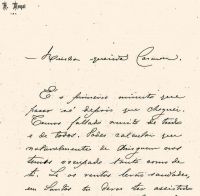 Minha querida Carmen.
E o primeiro minuto que
passo só depois que cheguei.
Temos fallado muito de tudo
e de todos. Podes calcular que
naturalmente de ninguem nos
temos occupado tanto como de
ti. Se os ventos levão saudades,
em Santos te deves ter assistido